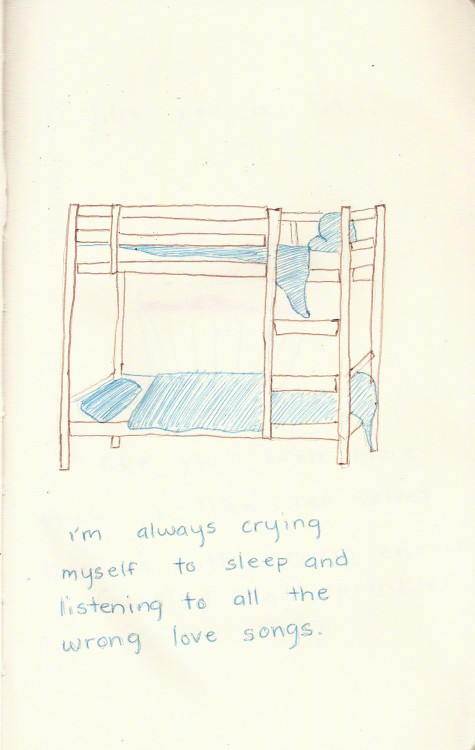 i'm always crying
myself to sleep and
listening to all the
wrong love songs.